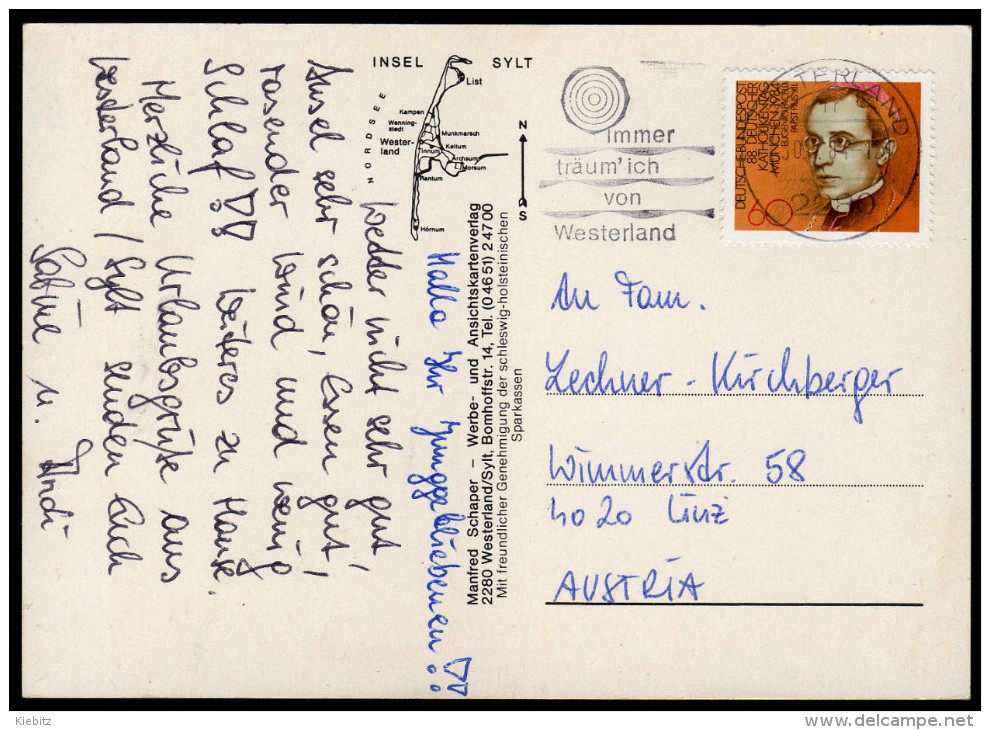 INSEL SYLT
NORDSEE
List
Kampen
Wenning-
stedt
Wester-
land
Munkmarsch
Keitum
Tinnum
Archsum
Morsum
Rantum
Hörnum
N
S
Hallo Ihr Junggebliebenen!!
Wetter nicht sehr gut,
Insel sehr schön, Essen gut,
rasender Wind und wenig
Schlaf!! Weiteres zu Hause.
Herzliche Urlaubsgrüße aus
Westerland / Sylt senden Euch
Sabine u. Andi
Manfred Schaper – Werbe- und Ansichtskartenverlag
2280 Westerland/Sylt, Bomhoffstr. 14, Tel. (0 46 51) 2 47 00
Mit freundlicher Genehmigung der schleswig-holsteinischen
Sparkassen
immer
träum' ich
von
Westerland
TERLAND
DEUTSCHE BUNDESPOST
88. DEUTSCHER
KATHOLIKENTAG
MÜNCHEN 1984
PAPST PIUS XII.
60
An Fam.
Lechner - Kirchberger
Wimmerstr. 58
4020 Linz
AUSTRIA
Kiebitz
www.delcampe.net